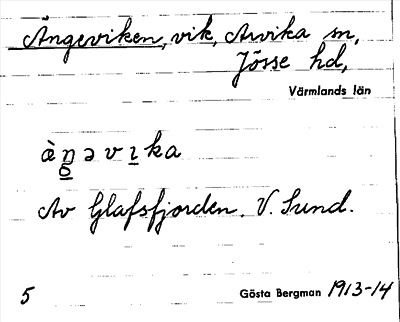 Ängeviken, vik, Arvika sn,
Jösse hd,
Värmlands län
Av Glafsfjorden. V. Sund.
5 Gösta Bergman 1913-14